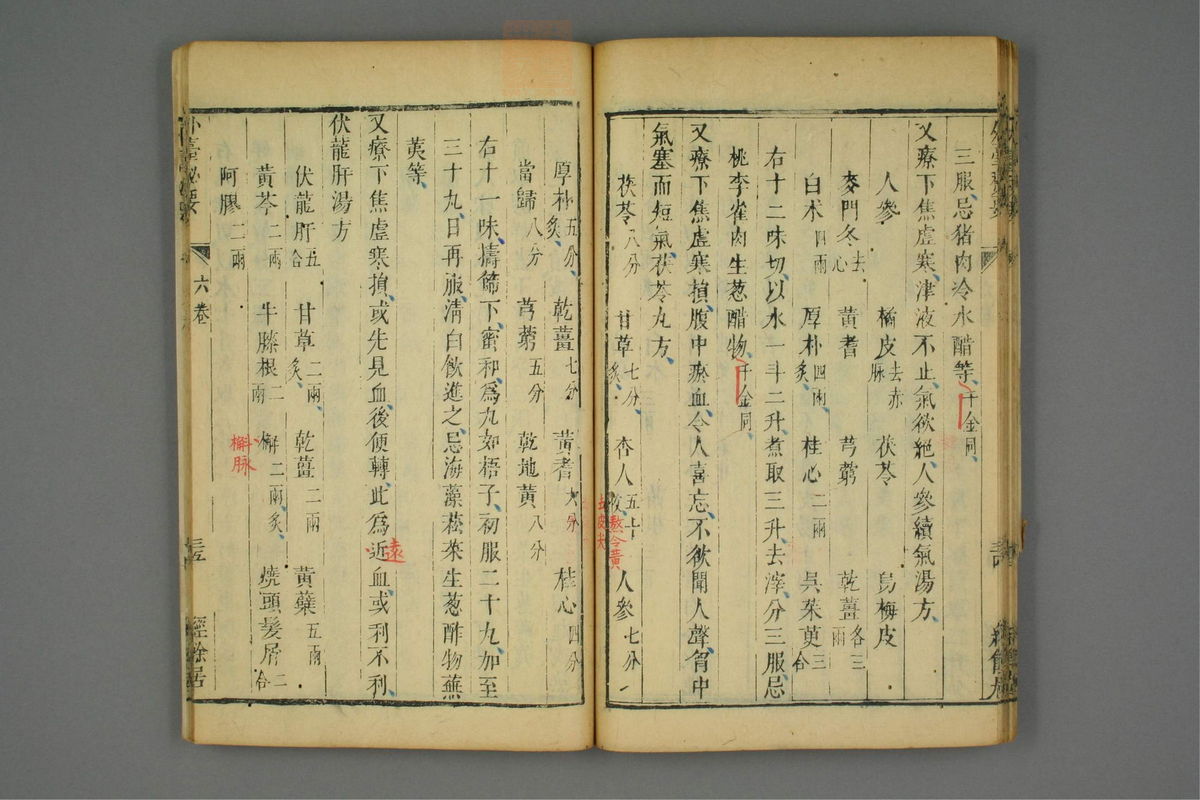 三服忌猪肉冷水醋等千金同
又療下焦虛寒津液不止氣欲絕人參續氣湯方
人參 橘皮去赤脉 茯苓 烏梅皮
麥門冬去心 黃耆 芎藭 乾薑各三兩
白术四兩 厚朴四兩炙 桂心二兩 吳茱萸三合
右十二味切以水一斗二升煮取三升去滓分三服忌
桃李雀肉生葱醋物千金同
又療下焦虛寒損腹中瘀血令人喜忘不欲聞人聲胷中
氣塞而短氣茯苓丸方
茯苓八分 甘草七分炙 杏人五十枚 人參七分
熬令黃
去皮尖
厚朴五分炙 乾薑七分 黃耆六分 桂心四分
當歸八分 芎藭五分 乾地黃八分
右十一味擣篩下蜜和爲丸如梧子初服二十丸加至
三十丸日再服清白飲進之忌海藻菘菜生葱酢物蕪
荑等
又療下焦虛寒損或先見血後便轉此爲近血或利不利
遠
伏龍肝湯方
伏龍肝五合 甘草二兩炙 乾薑二兩 黃蘗五兩
黃芩二兩 牛膝根二兩 槲二兩炙 燒頭髮屑二合
槲脉
阿膠二兩
外臺秘要 六卷 三五 經餘居